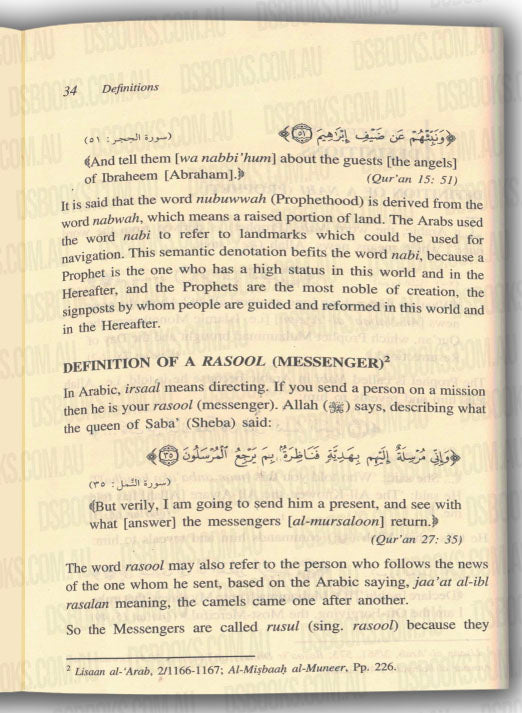 34 Definitions
﴿وَنَبِّئْهُمْ عَن ضَيْفِ إِبْرَاهِيمَ ﴿٥١﴾﴾ (سورة الحجر: ٥١)
﴾And tell them [wa nabbi’hum] about the guests [the angels]
of Ibraheem [Abraham].﴿ (Qur’an 15: 51)
It is said that the word nubuwwah (Prophethood) is derived from the
word nabwah, which means a raised portion of land. The Arabs used
the word nabi to refer to landmarks which could be used for
navigation. This semantic denotation befits the word nabi, because a
Prophet is the one who has a high status in this world and in the
Hereafter, and the Prophets are the most noble of creation, the
signposts by whom people are guided and reformed in this world and
in the Hereafter.
DEFINITION OF A RASOOL (MESSENGER)²
In Arabic, irsaal means directing. If you send a person on a mission
then he is your rasool (messenger). Allah (ﷻ) says, describing what
the queen of Saba’ (Sheba) said:
﴿وَإِنِّي مُرْسِلَةٌ إِلَيْهِم بِهَدِيَّةٍ فَنَاظِرَةٌ بِمَ يَرْجِعُ الْمُرْسَلُونَ ﴿٣٥﴾﴾
(سورة النمل: ٣٥)
﴾But verily, I am going to send him a present, and see with
what [answer] the messengers [al-mursaloon] return.﴿
(Qur’an 27: 35)
The word rasool may also refer to the person who follows the news
of the one whom he sent, based on the Arabic saying, jaa’at al-ibl
rasalan meaning, the camels came one after another.
So the Messengers are called rusul (sing. rasool) because they
² Lisaan al-‘Arab, 2/1166-1167; Al-Miṣbaaḥ al-Muneer, Pp. 226.
DSBOOKS.COM.AU